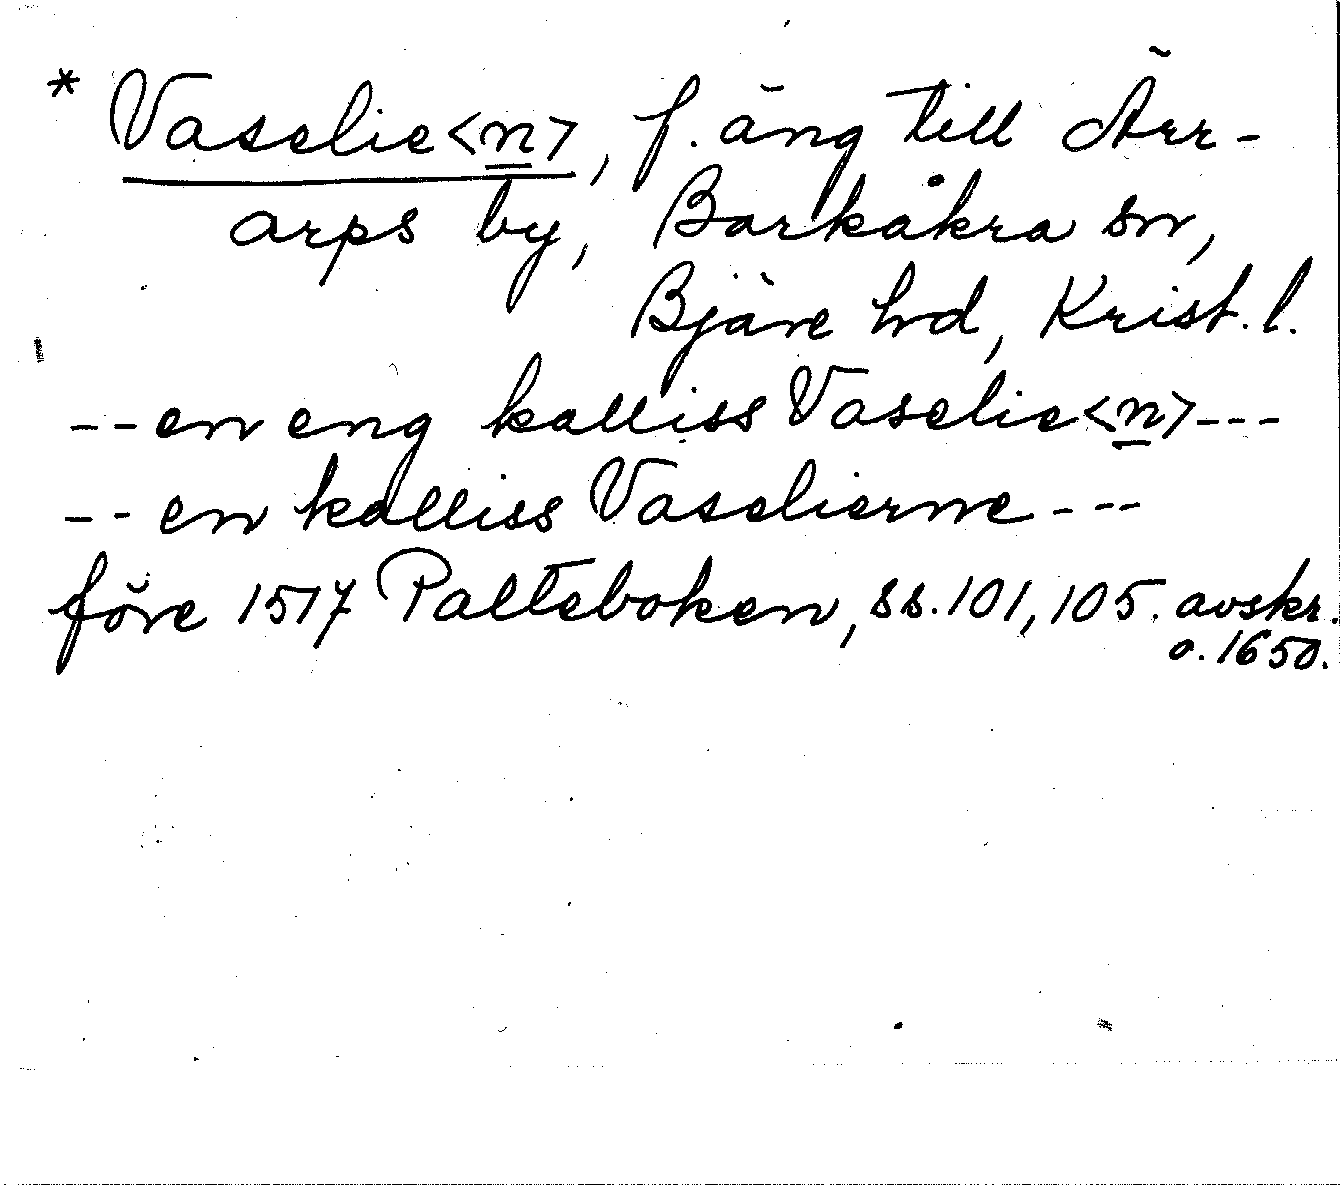 * Vaselie<n>, f. äng till Ärr-
arps by, Barkåkra sn,
Bjäre hd, Krist. l.
-- en eng kalliss Vaselie<n> ---
-- en kalliss Vaselierne ---
före 1517 Palteboken, ss. 101, 105. avskr.
o. 1650.